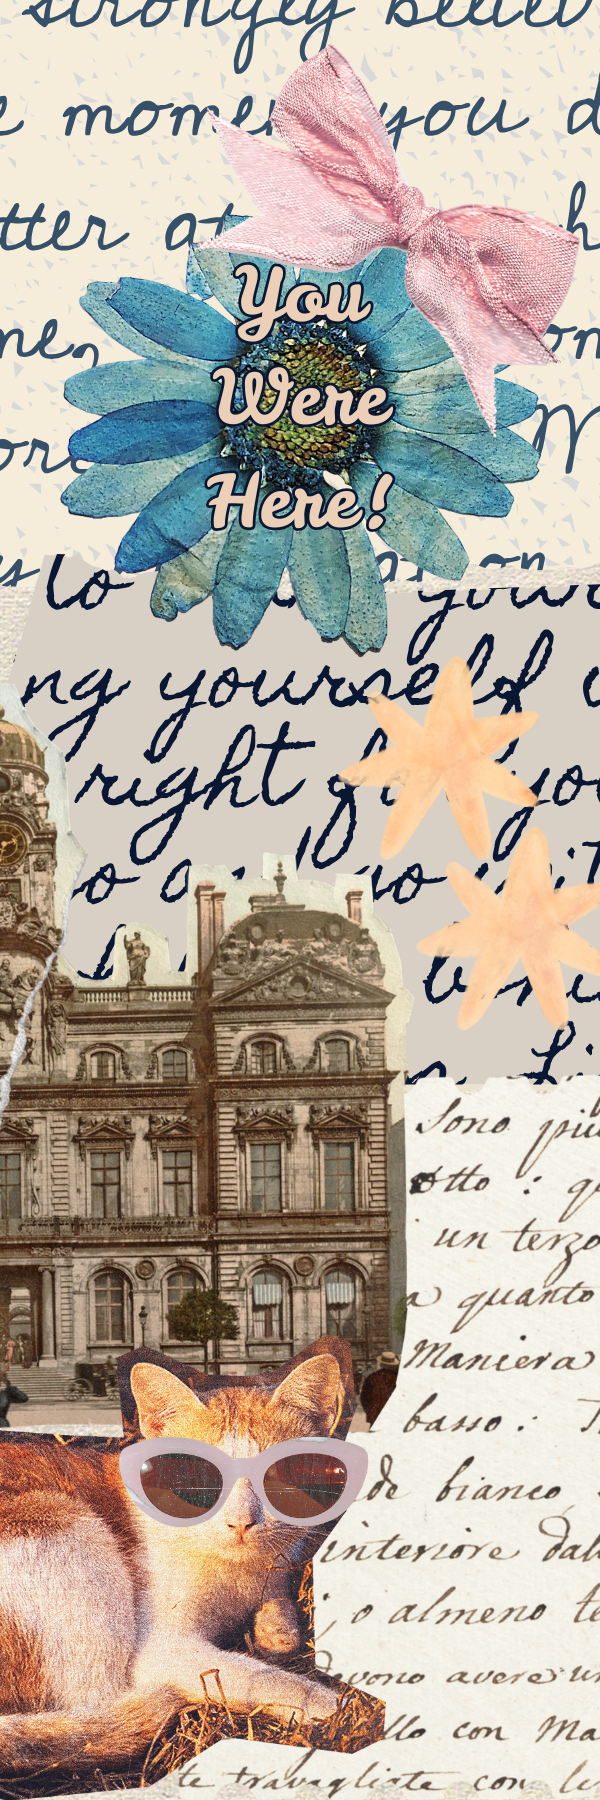 strongly believ
e momen you d
tter at h
You
me, on
Were
ore M
Here!
s to at on
your
ng yourself
right fo you
o a no wit
Sono più
otto : qu
un terzo
a quanto
Maniera
basso : T
de bianco
interiore dall
, o almeno te
devono avere un
llo con Ma
te travagliate con le